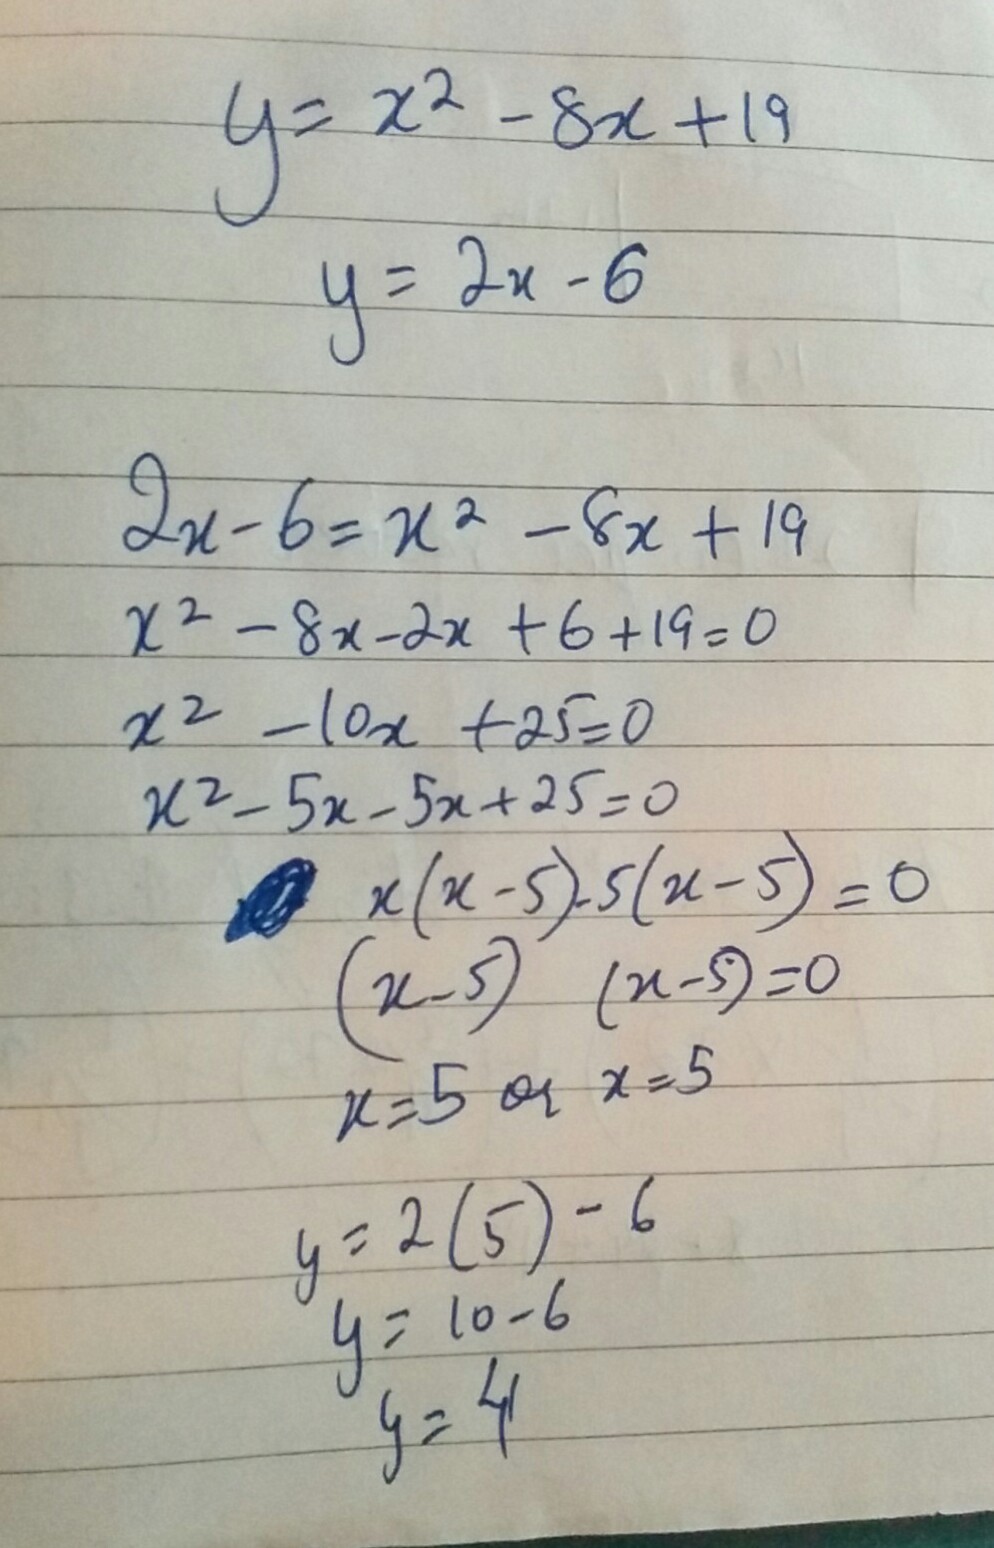 y = x² - 8x + 19
y = 2x - 6
2x - 6 = x² - 8x + 19
x² - 8x - 2x + 6 + 19 = 0
x² - 10x + 25 = 0
x² - 5x - 5x + 25 = 0
x(x - 5) - 5(x - 5) = 0
(x - 5) (x - 5) = 0
x = 5 or x = 5
y = 2(5) - 6
y = 10 - 6
y = 4